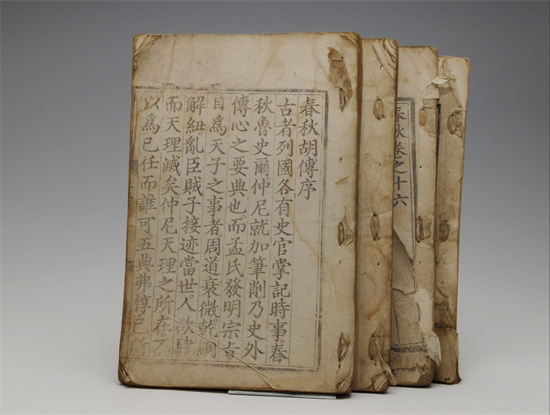 春秋胡傳序
古者列國各有史官掌記時事春
秋魯史爾仲尼就加筆削乃史外
傳心之要典也而孟氏發明宗旨
目爲天子之事者周道衰微乾綱
解紐亂臣賊子接迹當世人欲肆
而天理滅矣仲尼天理之所在不
以爲己任而誰可五典弗惇己所
春秋卷之十六